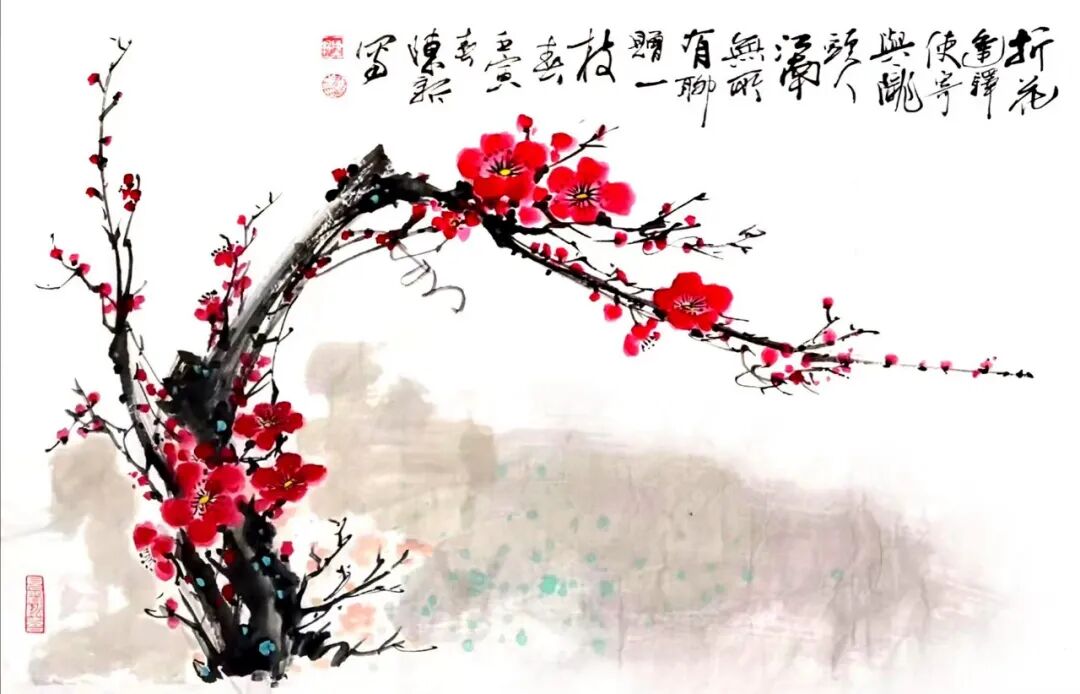 折花
逢驛
使寄
與隴
頭人
江南
無所
有聊
贈一
枝
春
壬寅
春
陳
寫